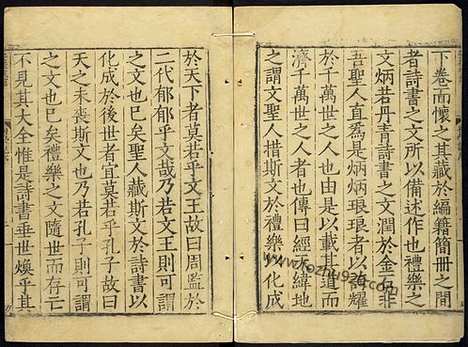 下卷而懷之其藏於編籍簡冊之間
者詩書之文所以備述作也禮樂之
文炳若丹青詩書之文潤於金石非
吾聖人直為是炳炳琅琅以誇耀
於千萬世之人也由是以載其道而
濟千萬世之人者也傳曰經天緯地
之謂文聖人措斯文於禮樂以化成
於天下者莫若乎文王故曰周監於
二代郁郁乎文哉乃若文王則可謂
之文也已矣聖人藏斯文於詩書以
化成於後世者宜莫若乎孔子故曰
天之未喪斯文也乃若孔子則可謂
之文也已矣禮樂之文隨世而存亡
不見其大全惟是詩書垂世煥乎其